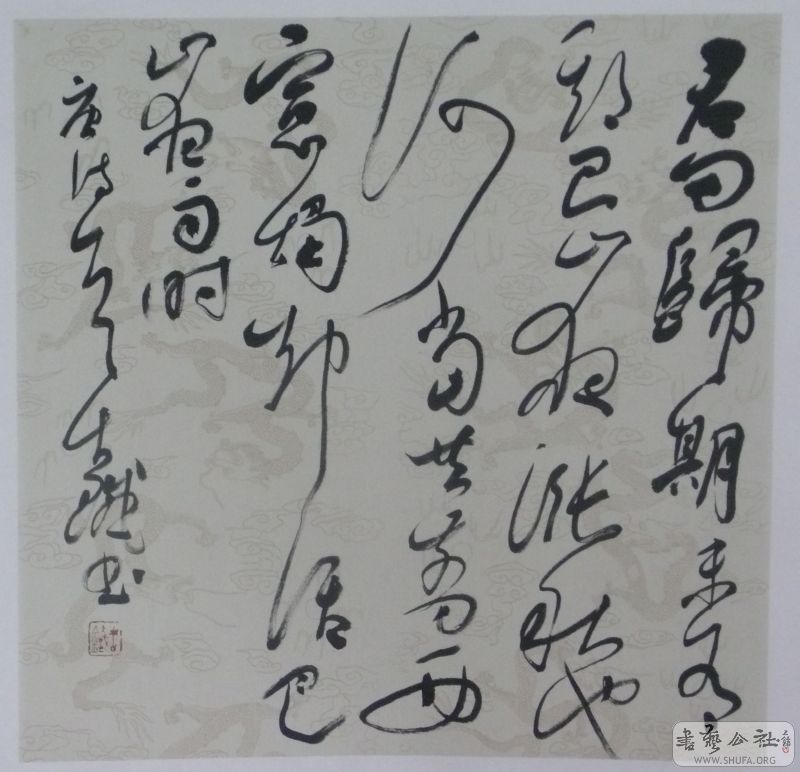 君问歸期未有
期巴山夜漲秋池
何當共剪西
窗燭却話巴
山夜雨时
唐诗一首书
書藝公社
WWW.SHUFA.ORG